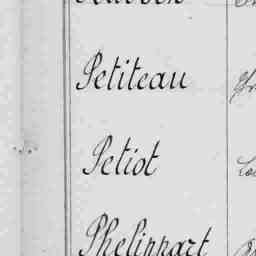 Petiteau
Petiot
Phelippart